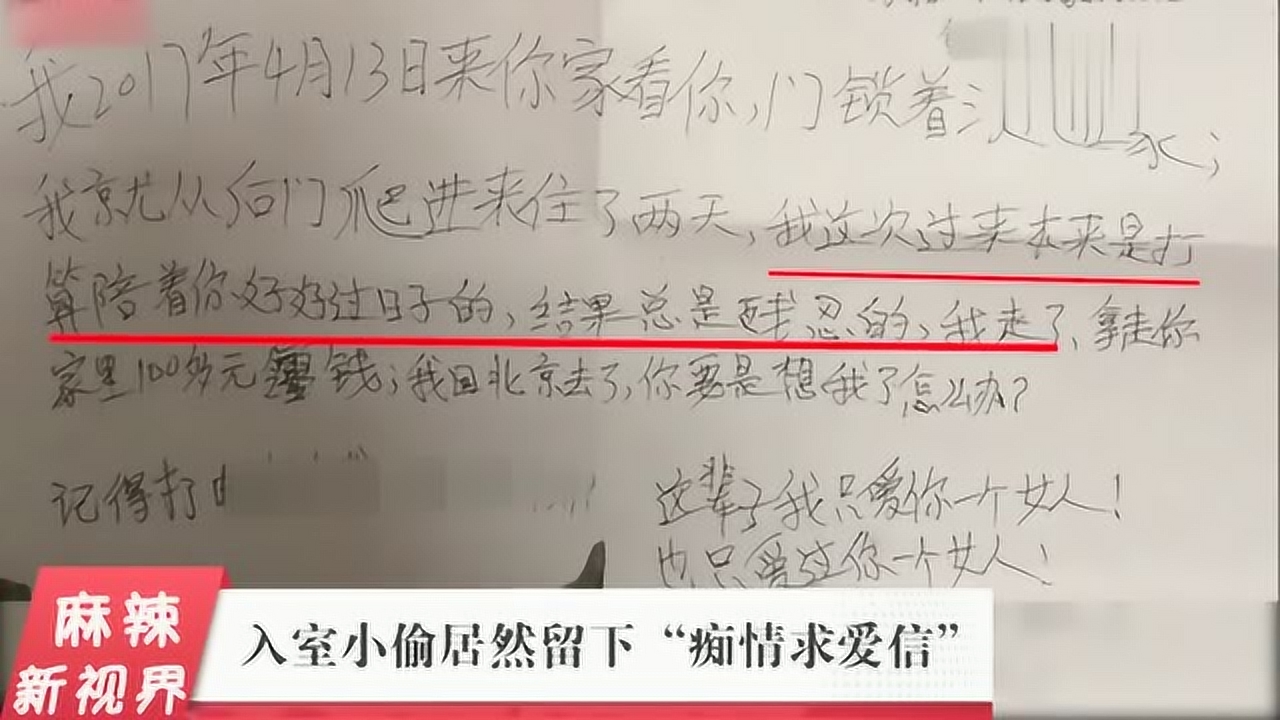 我2017年4月13日来你家看你,门锁着
我就从后门爬进来住了两天,我这次过来本来是打
算陪着你好好过日子的,结果总是残忍的,我走了,拿走你
家里100多元零钱;我回北京去了,你要是想我了怎么办?
记得打
这辈子我只爱你一个女人!
也只爱过你一个女人!
麻辣
新视界
入室小偷居然留下“痴情求爱信”